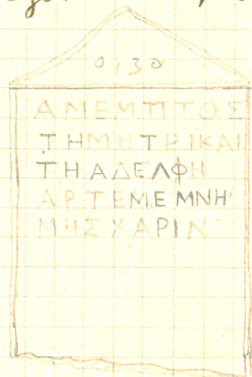 0,30
ΑΜΕΜΠΤΟΣ
ΤΗΜΗΤΡΙΚΑΙ
ΤΗΑΔΕΛΦΗ
ΑΡΤΕΜΕΜΝΗ
ΜΗΣΧΑΡΙΝ